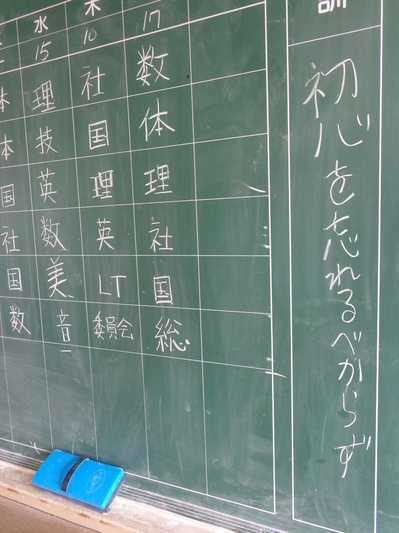 水 木
15 10 17
理 社 数
技 国 体
国 英 理 理
社 数 英 社
国 美 LT 国
数 音 委員会 総
訓
初心を忘れるべからず